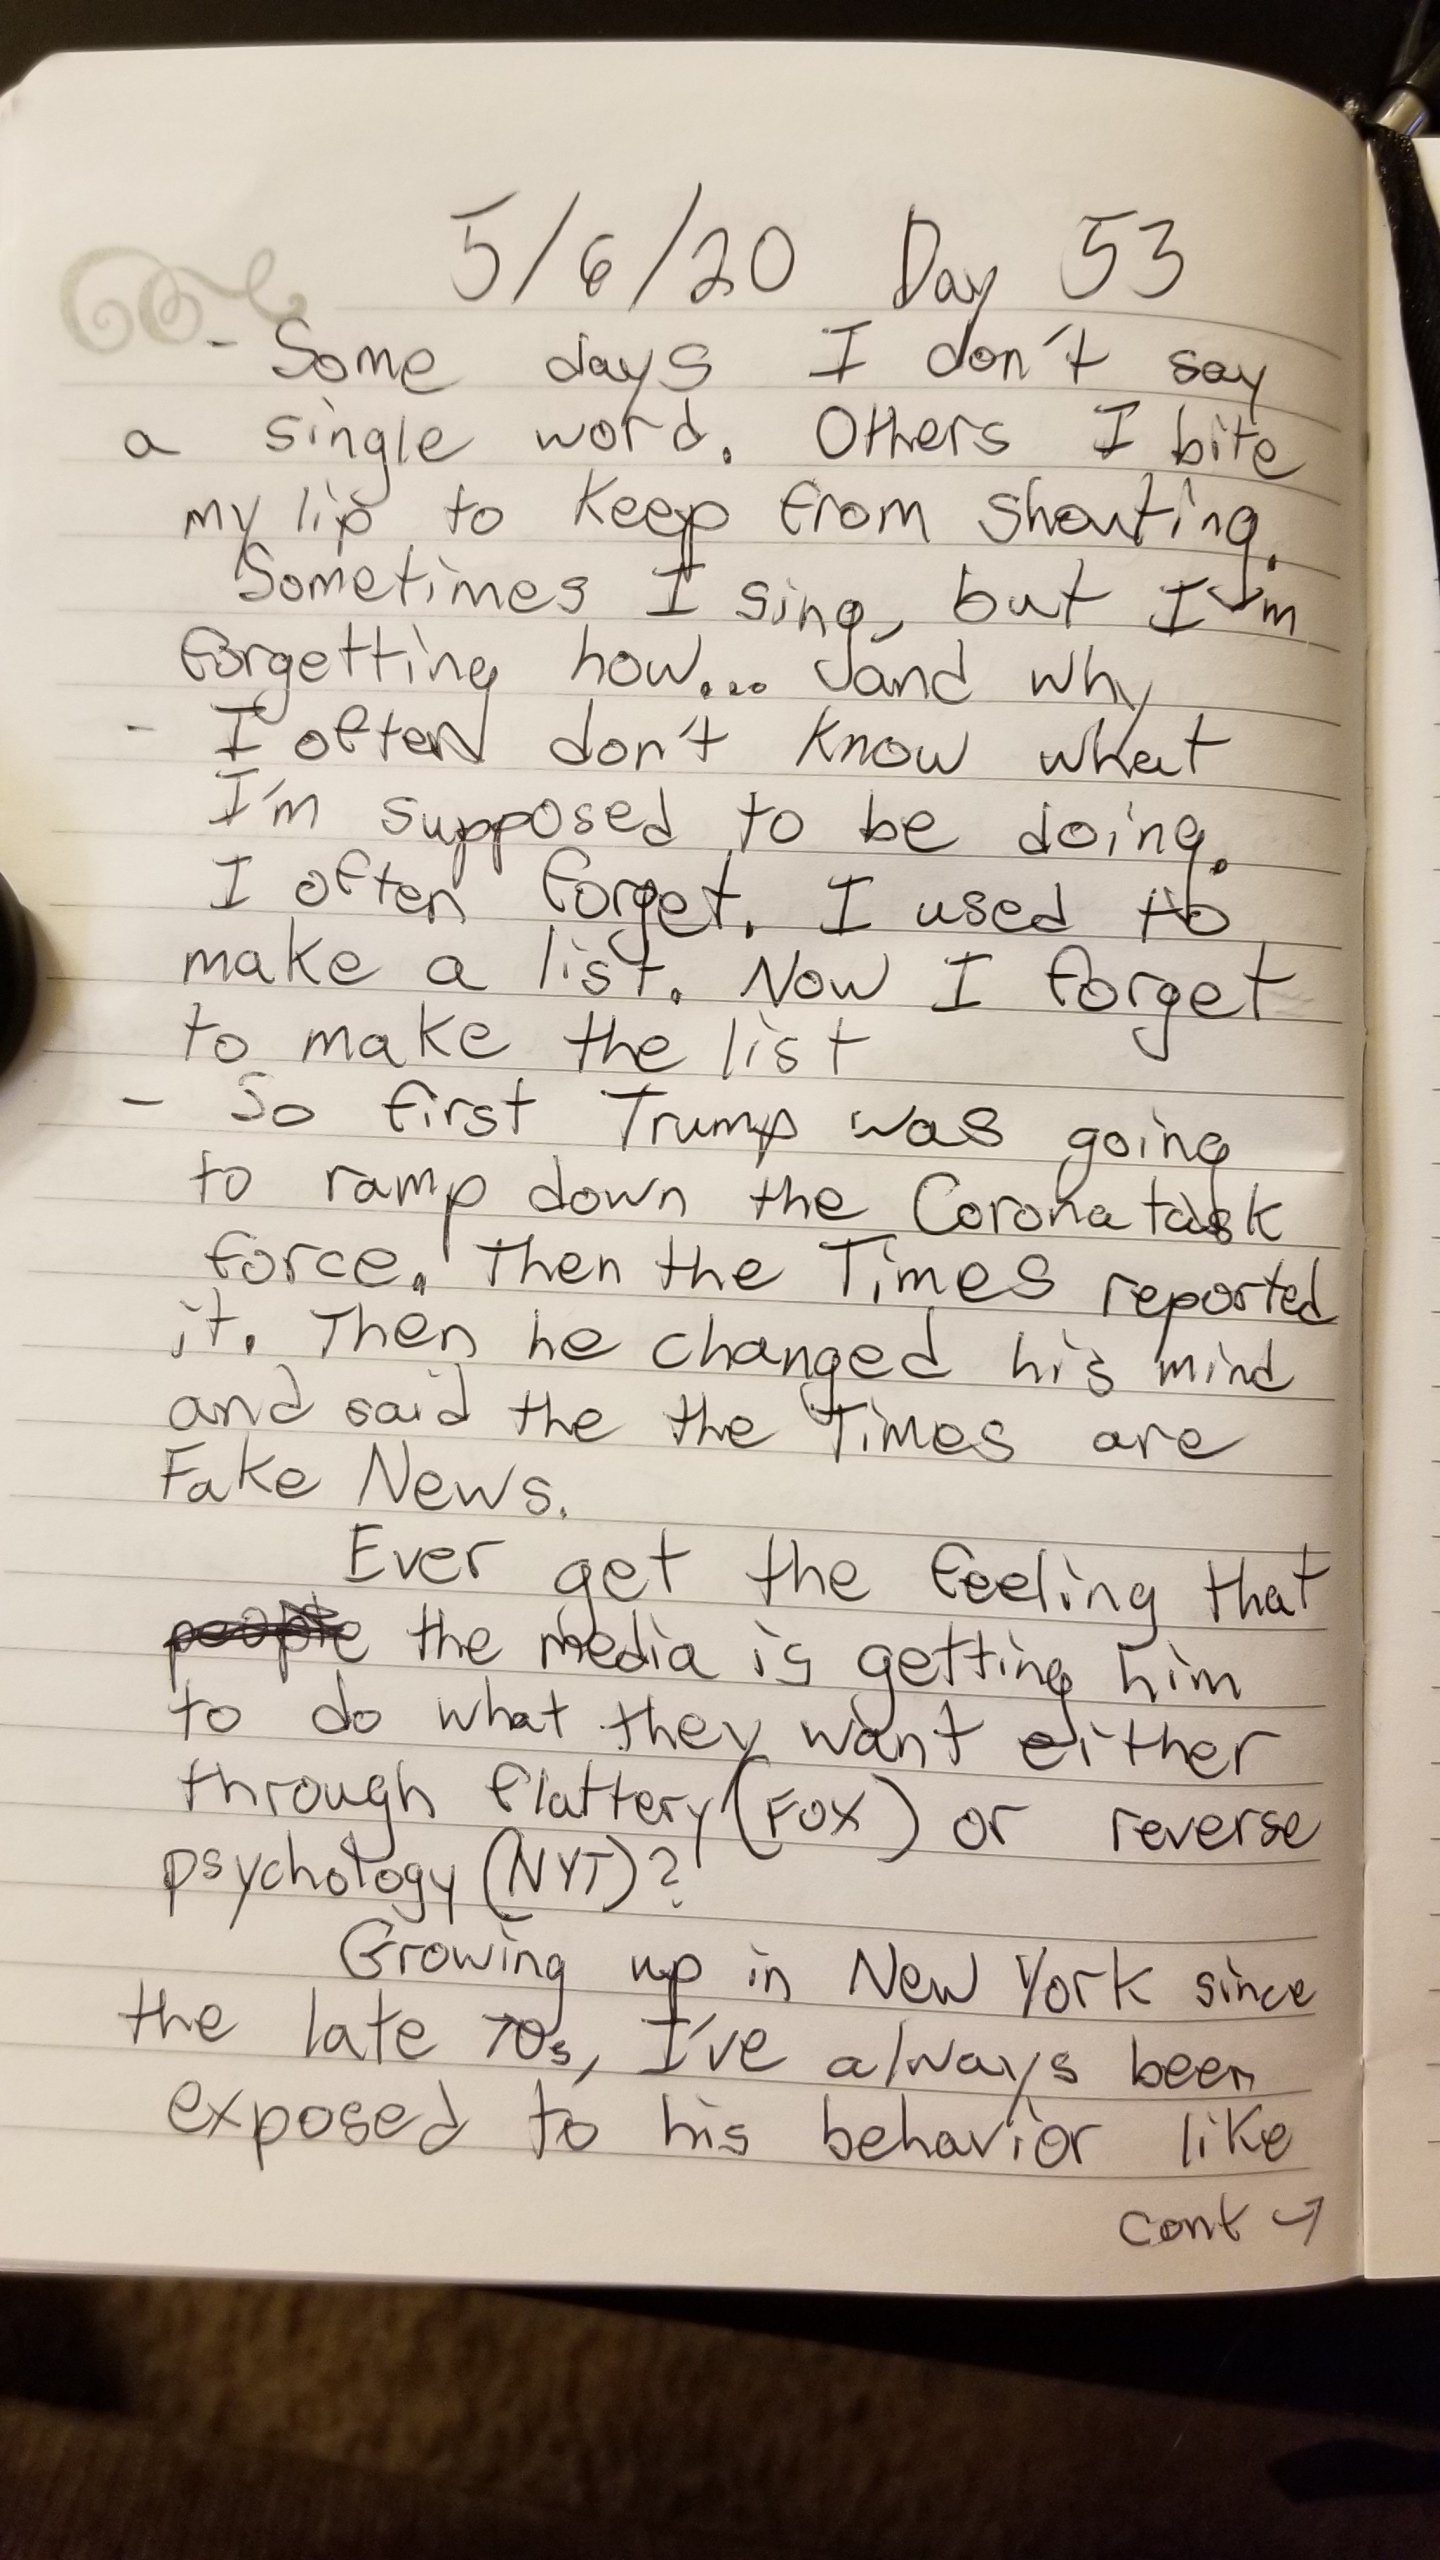 5/6/20 Day 53
- Some days I don't say
a single word. Others I bite
my lip to keep from shouting.
Sometimes I sing, but I'm
forgetting how... and why
- I often don't know what
I'm supposed to be doing.
I often forget. I used to
make a list. Now I forget
to make the list
- So first Trump was going
to ramp down the Corona task
force. Then the Times reported
it. Then he changed his mind
and said the the Times are
Fake News.
Ever get the feeling that
people the media is getting him
to do what they want either
through flattery (FOX) or reverse
psychology (NYT)?
Growing up in New York since
the late 70s, I've always been
exposed to his behavior like
cont →